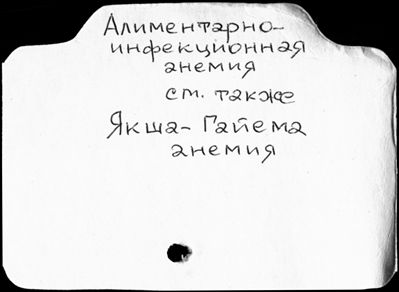 Алиментарно-
инфекционная
анемия
см. также
Якша-Гайема
анемия